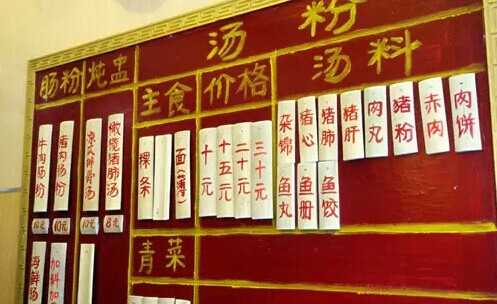 汤粉
肠粉
炖盅
主食
价格
汤料
牛肉肠粉
猪肉肠粉
橄榄猪肺汤
10元
10元
10元
8元
粿条
面(薄)
十元
十五元
二十元
三十元
杂锦
猪心
猪肺
猪肝
肉丸
猪粉
赤肉
肉饼
鱼丸
鱼册
鱼饺
青菜
海鲜汤
加料加